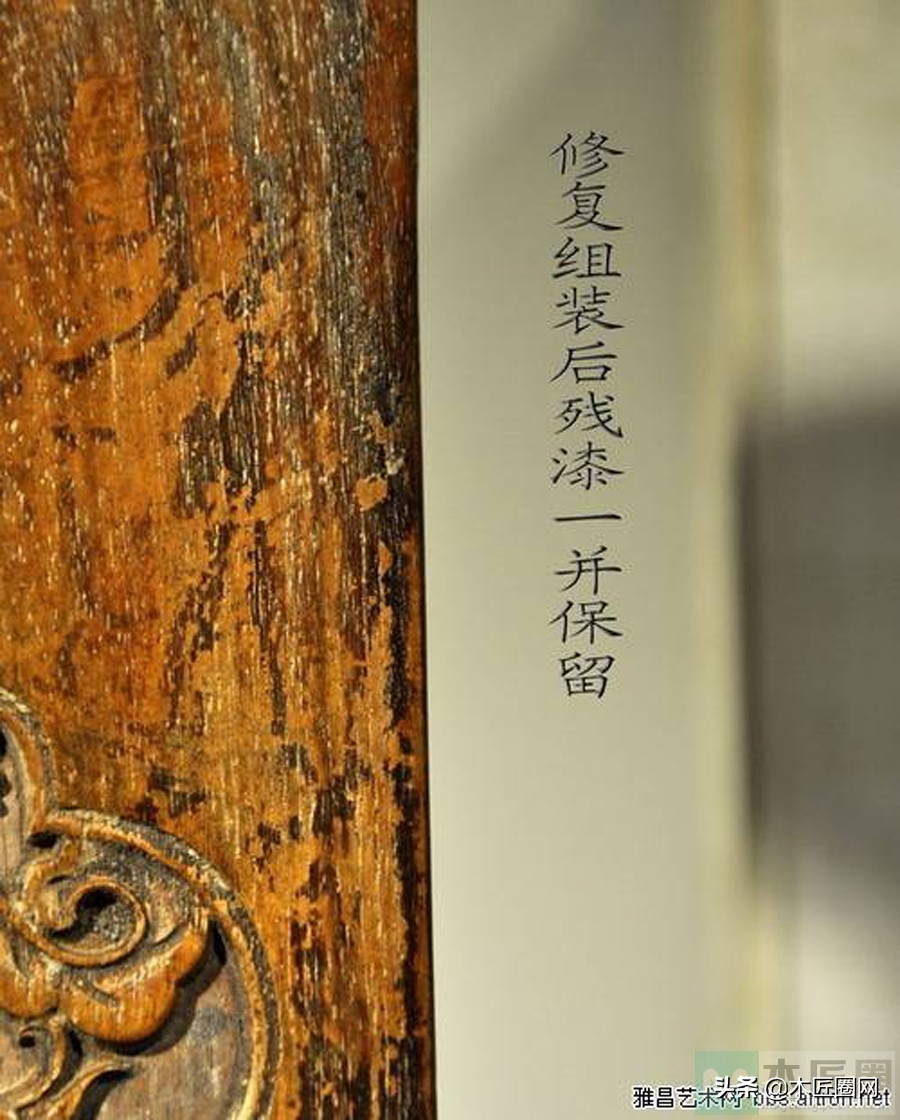 修复组装后残漆一并保留
木匠圈
雅昌艺术网 bbs.artron.net
头条 @木匠圈网